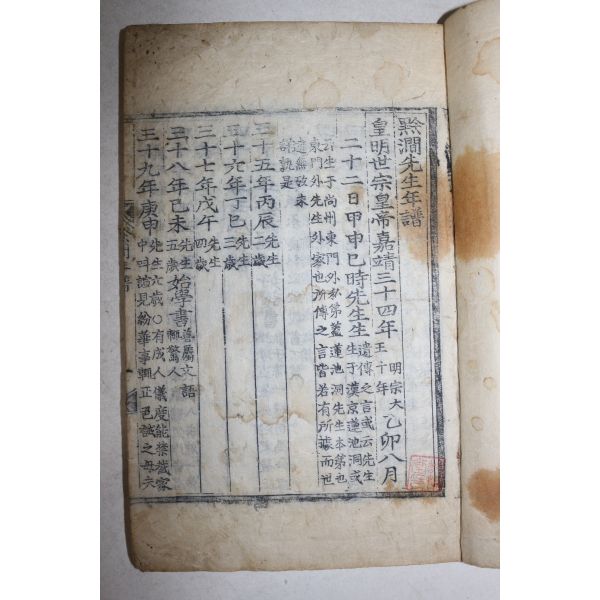 黔澗先生年譜
皇明世宗皇帝嘉靖三十四年 明宗大王十年 乙卯八月
二十二日甲申巳時先生生 遺傳之言或云先生生于漢京蓮池洞或
云生于尙州東門外私第蓋蓮池洞先生本第也
東門外先生外家也所傳之言皆若有所據而世
遠無攷未詳孰是
三十五年丙辰 先生二歲
三十六年丁巳 先生三歲
三十七年戊午 先生四歲
三十八年己未 先生五歲 始學書 善屬文語輒驚人
三十九年庚申 先生六歲○有成人儀度能禁戱家中叫謔見紛華事輒正色誠之每大